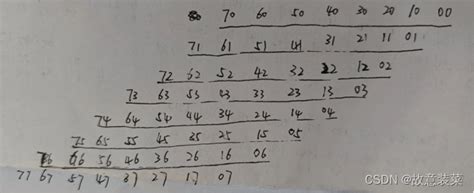 70 60 50 40 30 20 10 00
71 61 51 41 31 21 11 01
72 62 52 42 32 22 12 02
73 63 53 43 33 23 13 03
74 64 54 44 34 24 14 04
75 65 55 45 35 25 15 05
76 66 56 46 36 26 16 06
77 67 57 47 37 27 17 07
CSDN @故意装菜